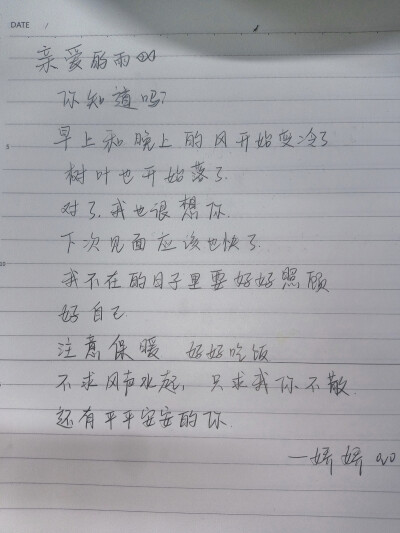 DATE /
亲爱的雨
你知道吗?
5
早上和晚上的风开始变冷了
树叶也开始落了.
对了.我也很想你.
下次见面应该也快了.
10
我不在的日子里要好好照顾
好自己
注意保暖 好好吃饭
不求风声水起, 只求我你不散.
还有平平安安的你.
—娇娇